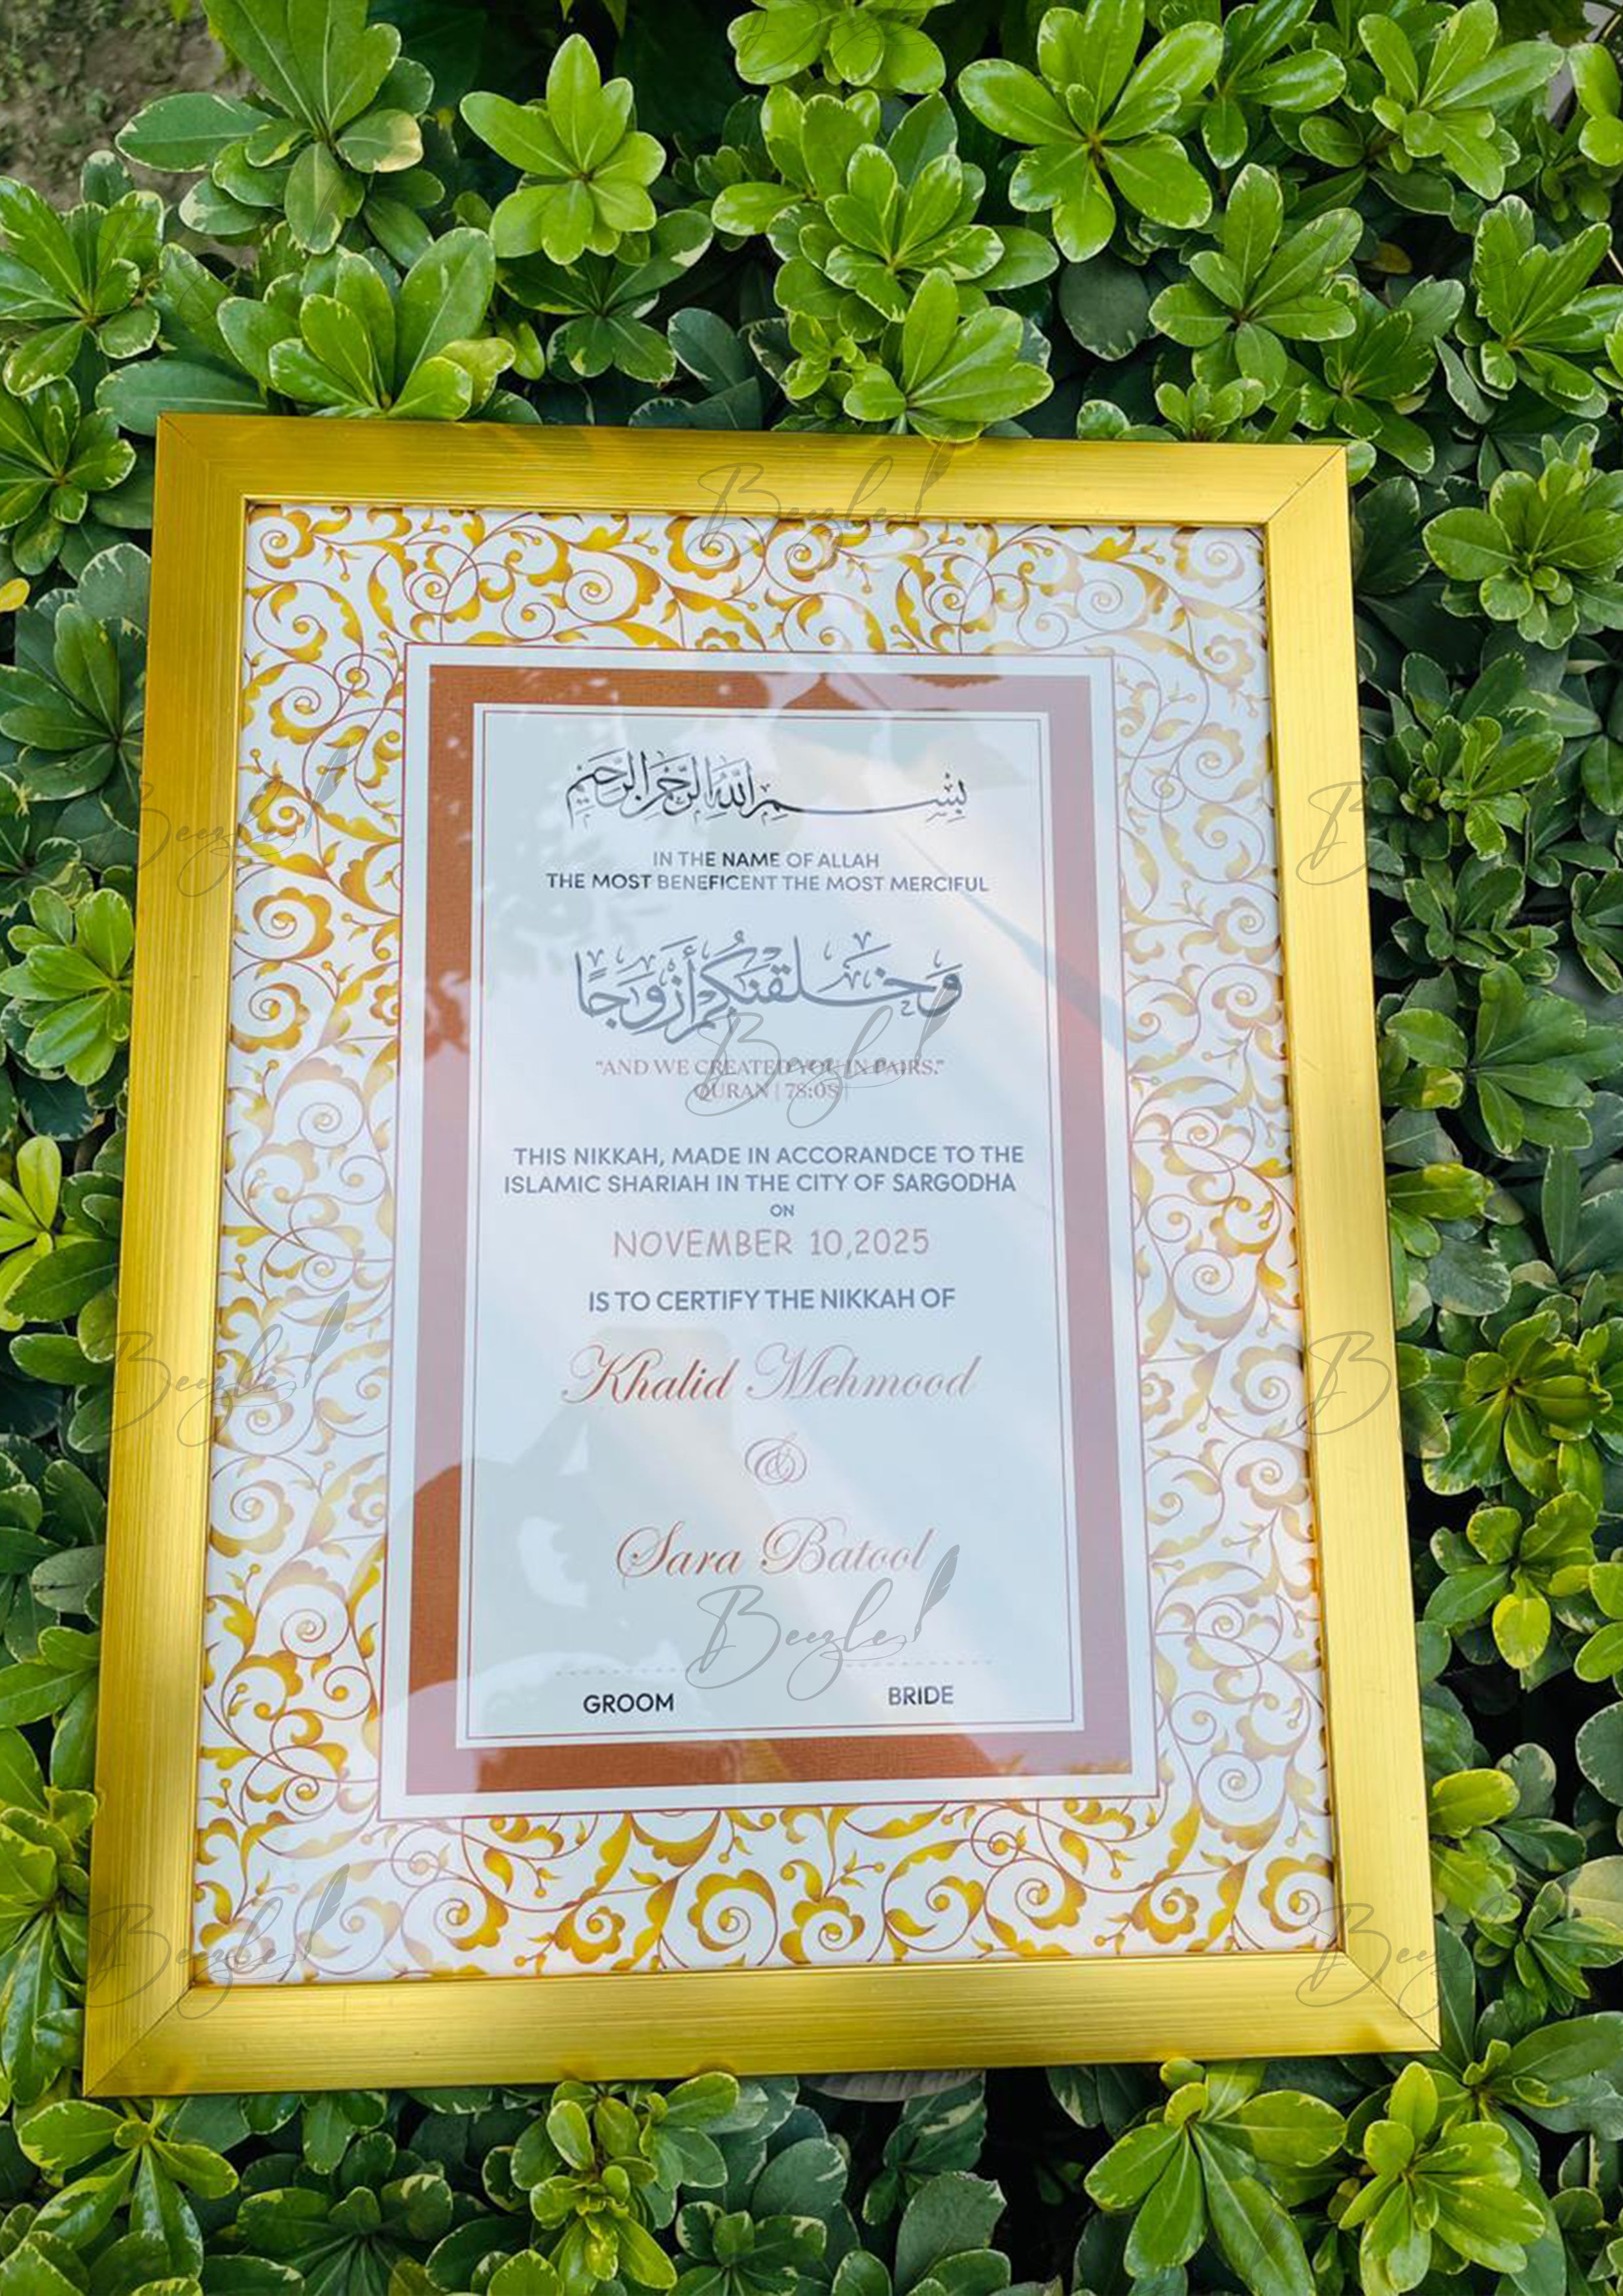 بِسْمِ اللَّهِ الرَّحْمَنِ الرَّحِيمِ
IN THE NAME OF ALLAH
THE MOST BENEFICENT THE MOST MERCIFUL
وَخَلَقْنَكُمْ أَزْوَجًا
"AND WE CREATED YOU IN PAIRS."
QURAN | 78:08 |
THIS NIKKAH, MADE IN ACCORANDCE TO THE
ISLAMIC SHARIAH IN THE CITY OF SARGODHA
ON
NOVEMBER 10,2025
IS TO CERTIFY THE NIKKAH OF
Khalid Mehmood
&
Sara Batool
GROOM BRIDE
Beezle